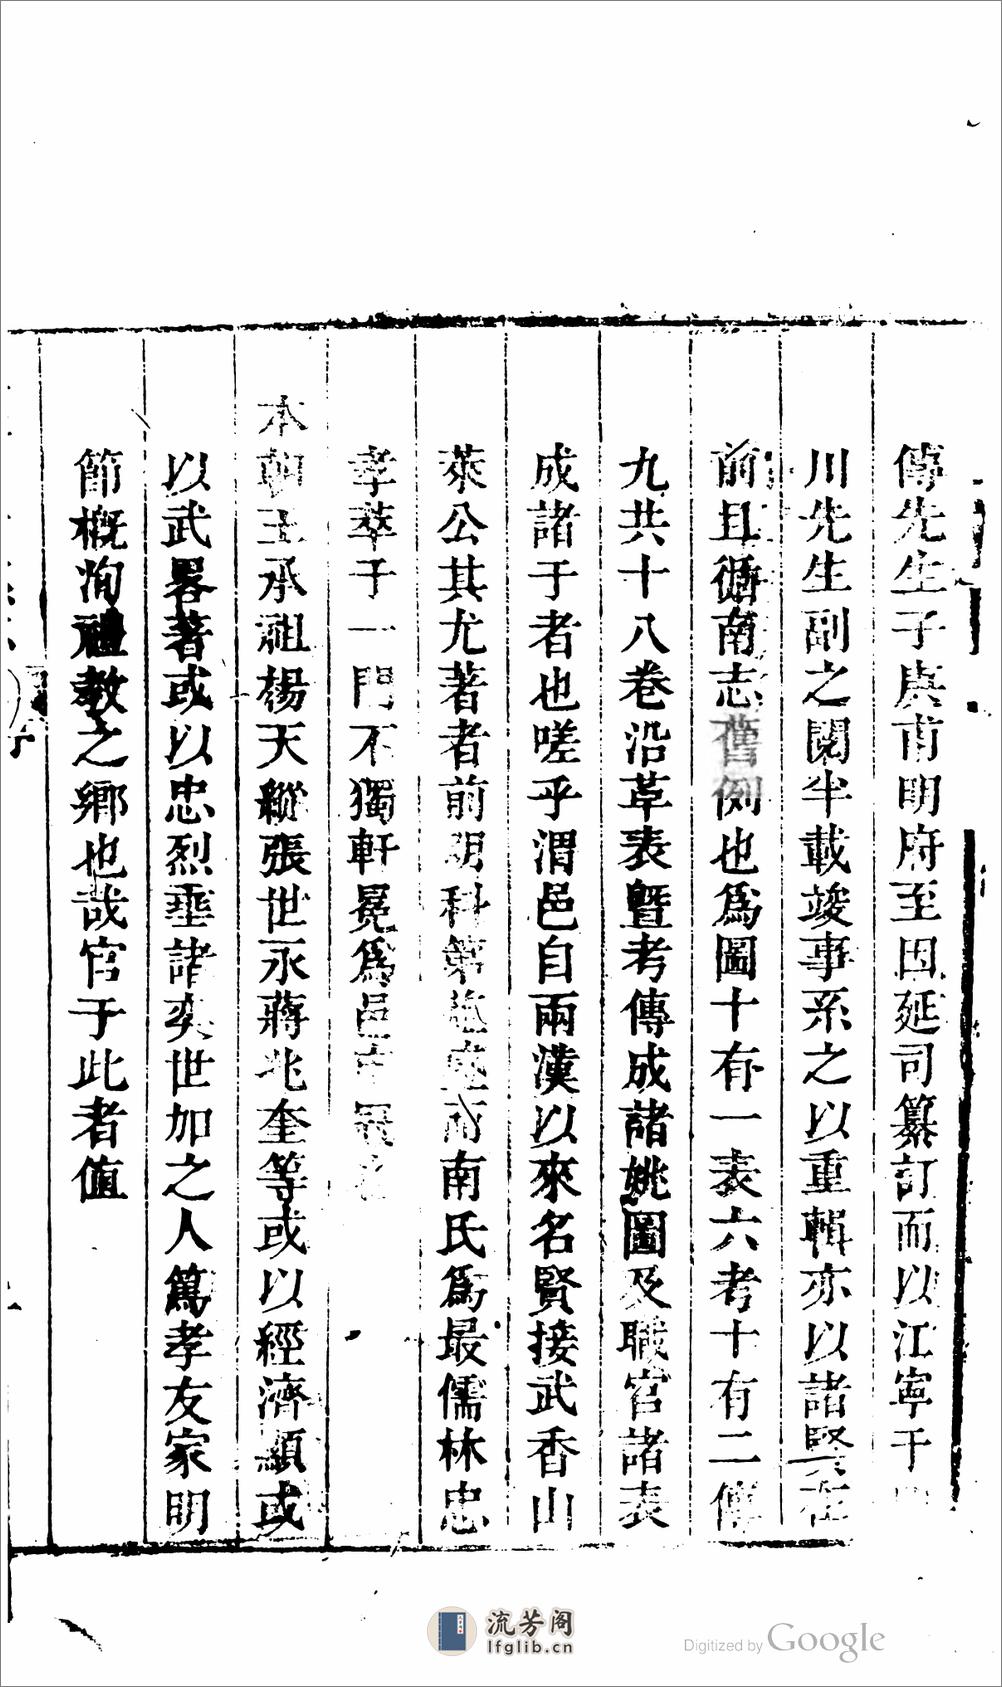 傳先生子庚甫明府至因延司纂訂而以江寧干
川先生副之閱半載竣事系之以重輯亦以諸賢在
前且循南志舊例也爲圖十有一表六考十有二傳
九共十八卷沿革表曁考傳成諸姚圖及職官諸表
成諸于者也嗟乎渭邑自兩漢以來名賢接武香山
萊公其尤著者前明科第益盛而南氏爲最儒林忠
孝萃于一門不獨軒冕爲邑
本朝王承祖楊天縱張世永蔣兆奎等或以經濟顯或
以武畧著或以忠烈垂諸奕世加之人篤孝友家明
節槪洵禮教之鄉也哉官于此者值
流芳阁
lfglib.cn
Digitized by Google